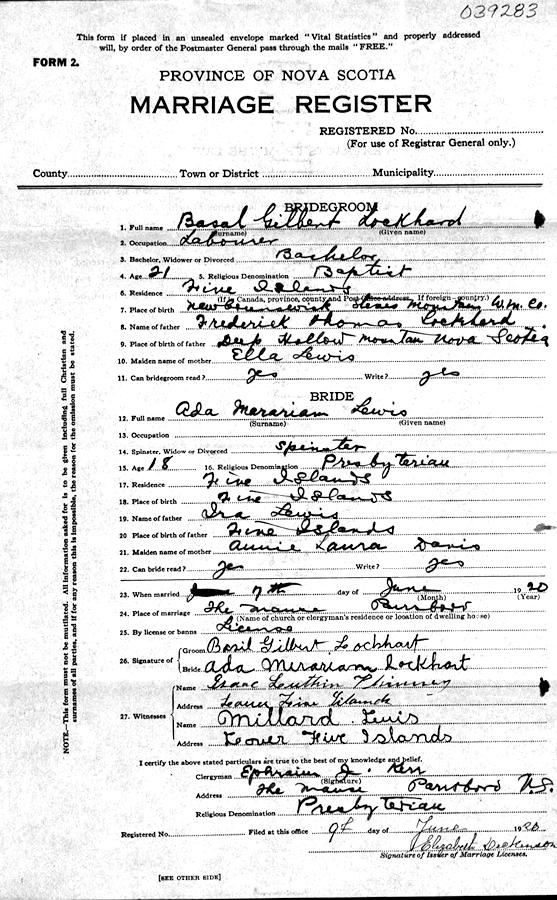 039283
This form if placed in an unsealed envelope marked "Vital Statistics" and properly addressed
will, by order of the Postmaster General pass through the mails "FREE."
FORM 2.
PROVINCE OF NOVA SCOTIA
MARRIAGE REGISTER
REGISTERED No.
(For use of Registrar General only.)
County Town or District Municipality
BRIDEGROOM
1. Full name Basal Gilbert Lockhard
(Surname) (Given name)
2. Occupation Labourer
3. Bachelor, Widower or Divorced Bachelor
4. Age 21 5. Religious Denomination Baptist
6. Residence Five Islands
(If in Canada, province, county and Post Office address. If foreign country.)
7. Place of birth New Brunswick Mountain W.M. Co.
8. Name of father Frederick Thomas Lockhard
9. Place of birth of father Deep Hollow mountain Nova Scotia
10. Maiden name of mother Ella Lewis
11. Can bridegroom read? yes Write? yes
BRIDE
12. Full name Ada Merariam Lewis
(Surname) (Given name)
13. Occupation
14. Spinster, Widow or Divorced Spinster
15. Age 18 16. Religious Denomination Presbyterian
17. Residence Five Islands
18. Place of birth Five Islands
19. Name of father Ira Lewis
20. Place of birth of father Five Islands
21. Maiden name of mother Annie Laura Davis
22. Can bride read? yes Write? yes
23. When married 7th day of June 1920
(Month) (Year)
24. Place of marriage The manse Parrsboro
(Name of church or clergyman's residence or location of dwelling house)
25. By license or banns License
26. Signature of Groom Basil Gilbert Lockhart
Bride Ada Merariam Lockhart
27. Witnesses Name Isaac
Address Lower Five Islands
Name Millard Lewis
Address Lower Five Islands
I certify the above stated particulars are true to the best of my knowledge and belief.
Clergyman Ephraim J. Kerr
(Signature)
Address The Manse Parrsboro N.S.
Religious Denomination Presbyterian
Registered No. Filed at this office 9th day of June 1920
Elizabeth Dickenson
Signature of Issuer of Marriage Licenses.
[SEE OTHER SIDE]
NOTE—This form must not be mutilated. All information asked for is to be given including full Christian and
surnames of all parties, and if for any reason this is impossible, the reason for the omission must be stated.